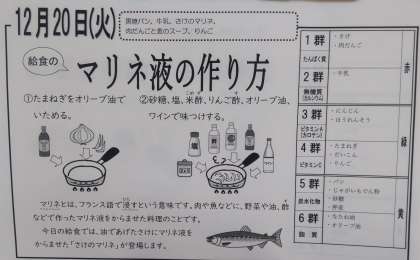 12月20日(火)
黒糖パン、牛乳、さけのマリネ、
肉だんごと麦のスープ、りんご
給食の
マリネ液の作り方
①たまねぎをオリーブ油で
いためる。
②砂糖、塩、米酢、りんご酢、オリーブ油、
ワインで味つけする。
マリネとは、フランス語で浸すという意味です。肉や魚などに、野菜や油、酢
などで作ったマリネ液をからませた料理のことです。
今日の給食では、油であげたさけにマリネ液を
からませた「さけのマリネ」が登場します。
1群
たんぱく質
・さけ
・肉だんご
2群
無機質
(カルシウム)
・牛乳
3群
ビタミンA
(カロテン)
・にんじん
・ほうれんそう
4群
ビタミンC
・たまねぎ
・だいこん
・りんご
5群
炭水化物
・パン
・じゃがいもでん粉
・砂糖
・押麦
6群
脂質
・なたね油
・オリーブ油
赤
緑
黄